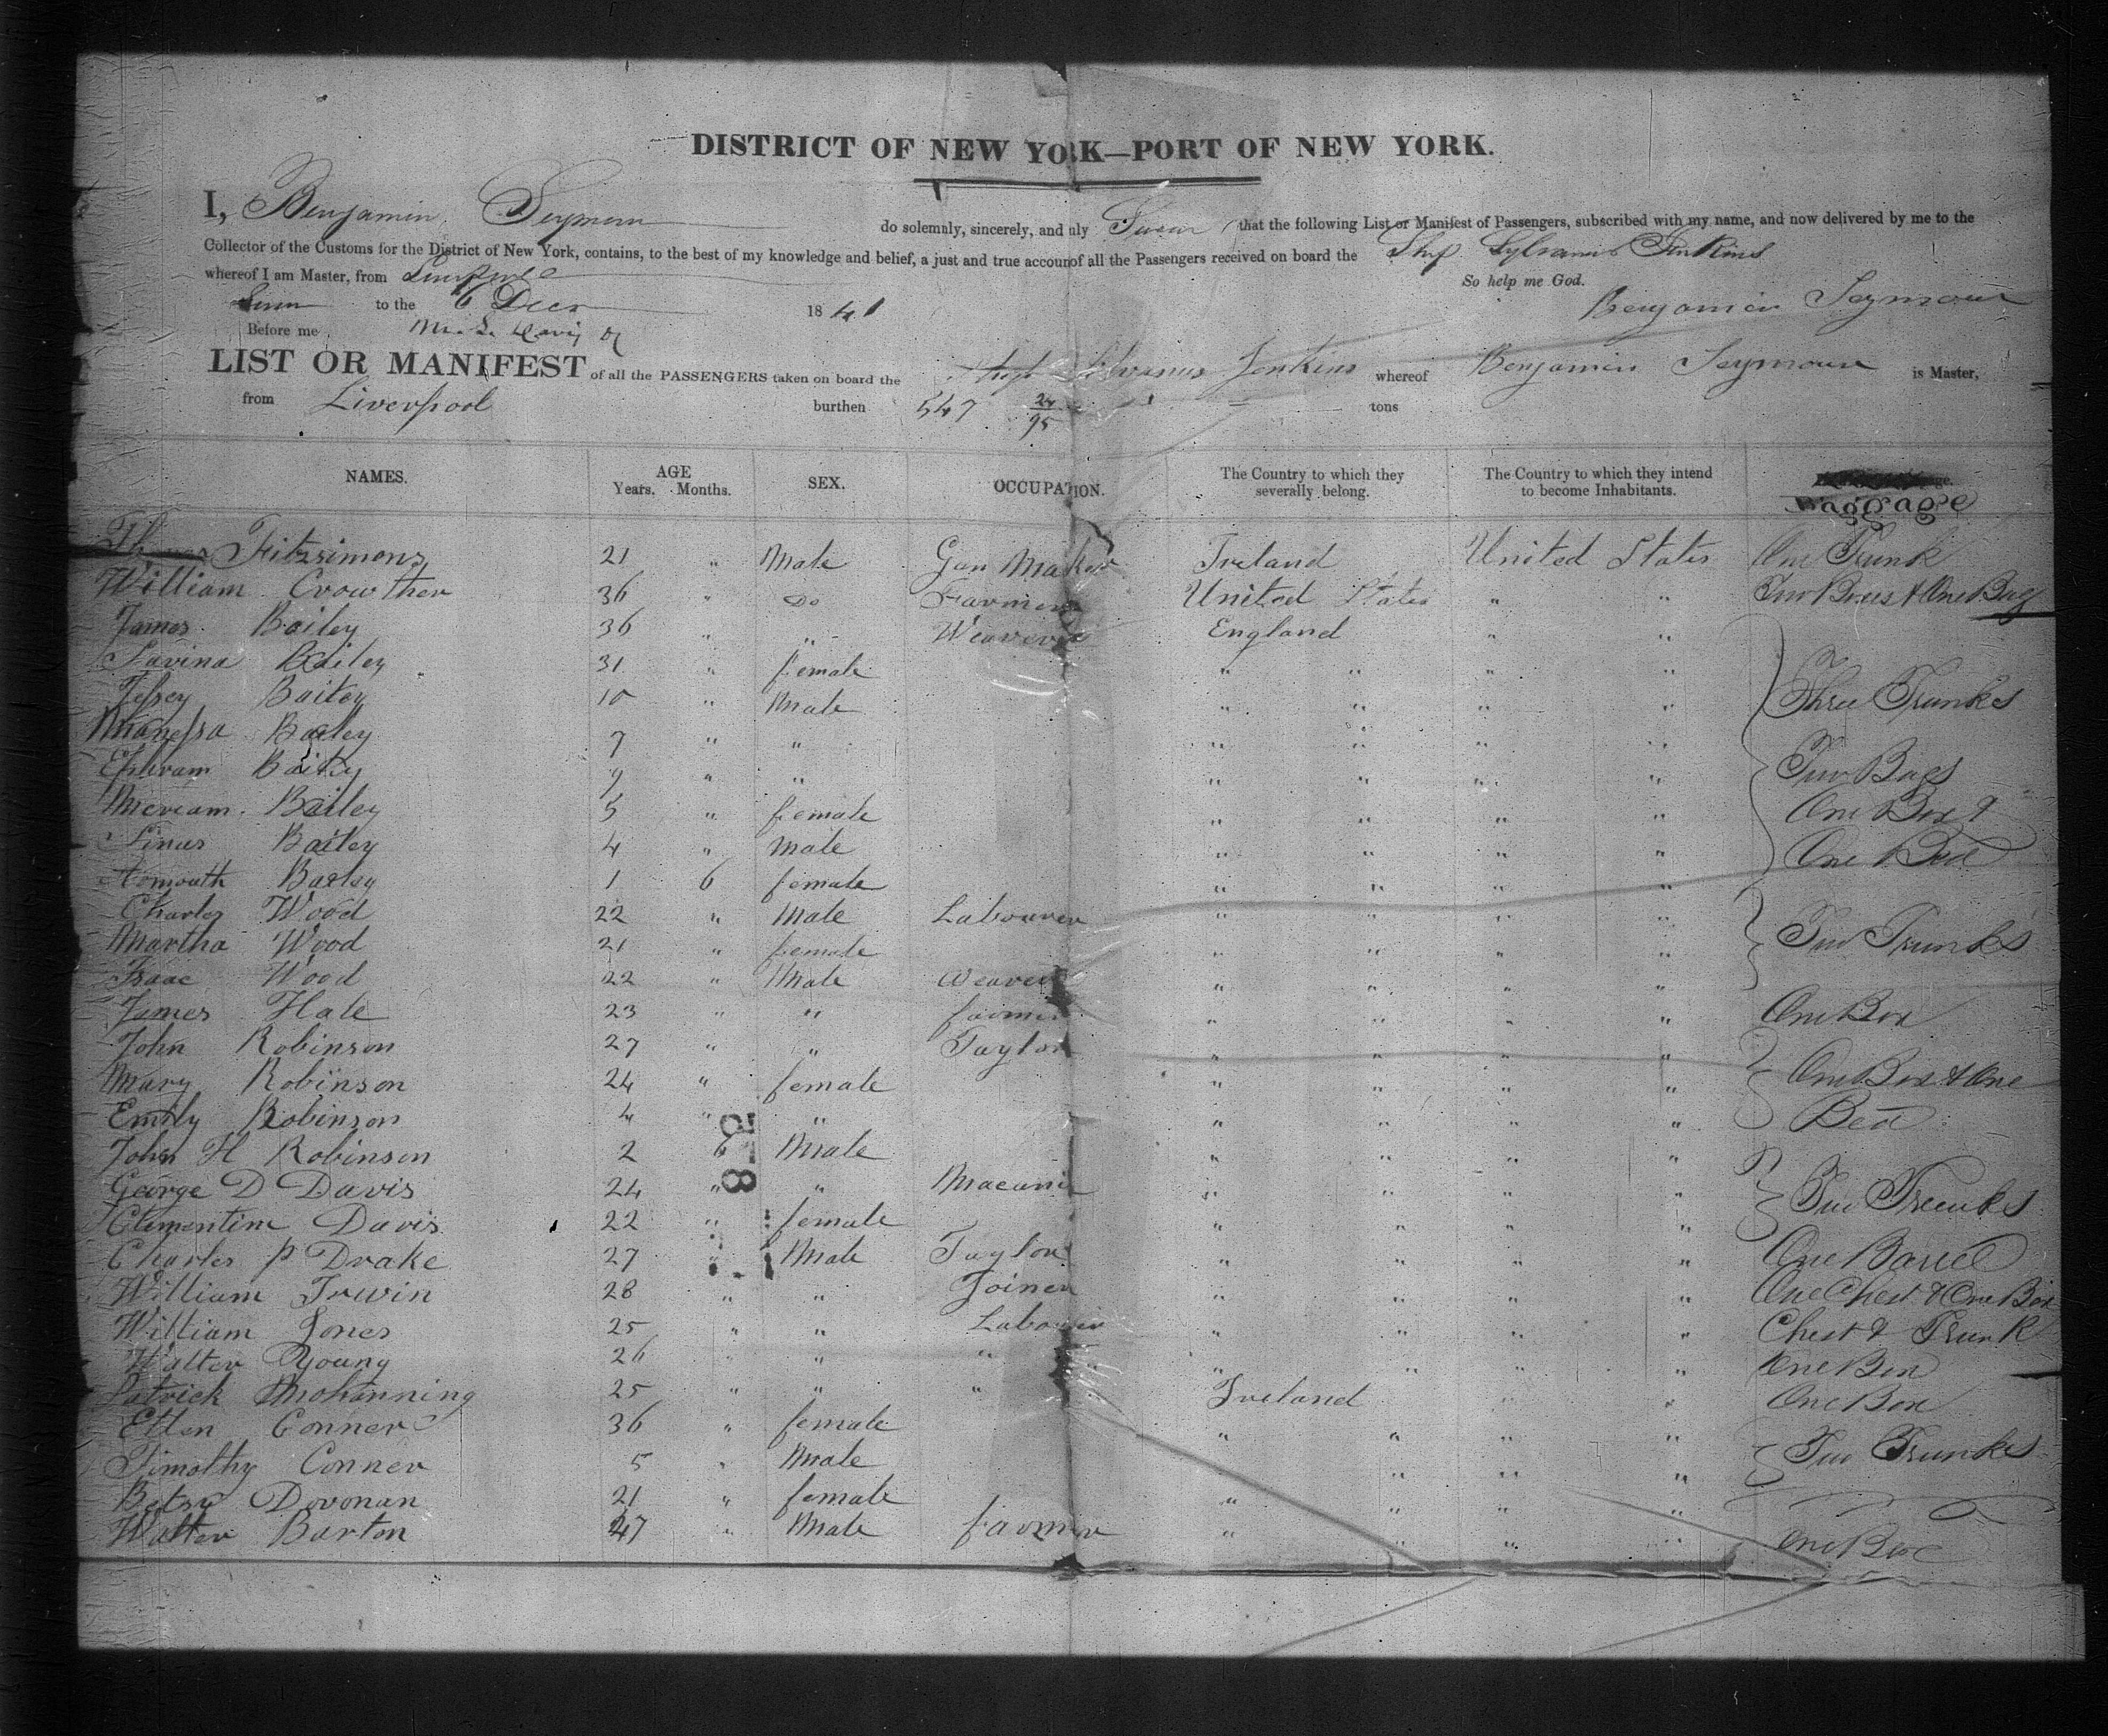 DISTRICT OF NEW YORK—PORT OF NEW YORK.
I, Benjamin Seymour do solemnly, sincerely, and uly Swear that the following List or Manifest of Passengers, subscribed with my name, and now delivered by me to the
Collector of the Customs for the District of New York, contains, to the best of my knowledge and belief, a just and true accoun of all the Passengers received on board the Ship Sylvanus Jenkins
whereof I am Master, from Liverpool So help me God.
Sworn to the 6 Decr 1841 Benjamin Seymour
Before me M. L. Davis
LIST OR MANIFEST of all the PASSENGERS taken on board the Ship Silvanus Jenkins whereof Benjamin Seymour is Master,
from Liverpool burthen 547 24/95 tons
NAMES. AGE Years. Months. SEX. OCCUPATION. The Country to which they severally belong. The Country to which they intend to become Inhabitants. Baggage
Fitzsimons 21 " Male Gun Maker Ireland United States One Trunk
William Crowther 36 " Do Farmer United States " " Two Boxes & One Bag
James Bailey 36 " " Weaver England " "
Lavina Bailey 31 " female " " " "
Jefsey Bailey 10 " Male " " " " Three Trunks
Manefsa Bailey 7 " " " " " "
Ephram Bailey 9 " " " " " " Two Bags
Meriam Bailey 5 " female " " " " One Box &
Linus Bailey 4 " Male " " " " One Bed
Bailey 1 6 female " " " "
Charles Wood 22 " Male Labourer " " " "
Martha Wood 21 " female " " " " Two Trunks
Isaac Wood 22 " Male Weaver " " " "
James Hale 23 " " farmer " " " " One Box
John Robinson 27 " " Taylor " " " "
Mary Robinson 24 " female " " " " One Box & One
Emily Robinson 4 " " " " " " Bed
John H Robinson 2 6 Male " " " "
George D Davis 24 " " " " " " Two Trunks
Clementine Davis 22 " female " " " "
Charles P Drake 27 " Male Taylor " " " " One Barrel
William Irwin 28 " " Joiner " " " " One Chest & One Box
William Jones 25 " " Labourer " " " " Chest & Trunk
Walter Young 26 " " " " " " " One Box
Patrick Mohanning 25 " " " Ireland " " One Box
Ellen Conner 36 " female " " " "
Timothy Conner 5 " Male " " " " Two Trunks
Betsy Dovonan 21 " female " " " "
Walter Barton 47 " Male farmer " " " " One Box